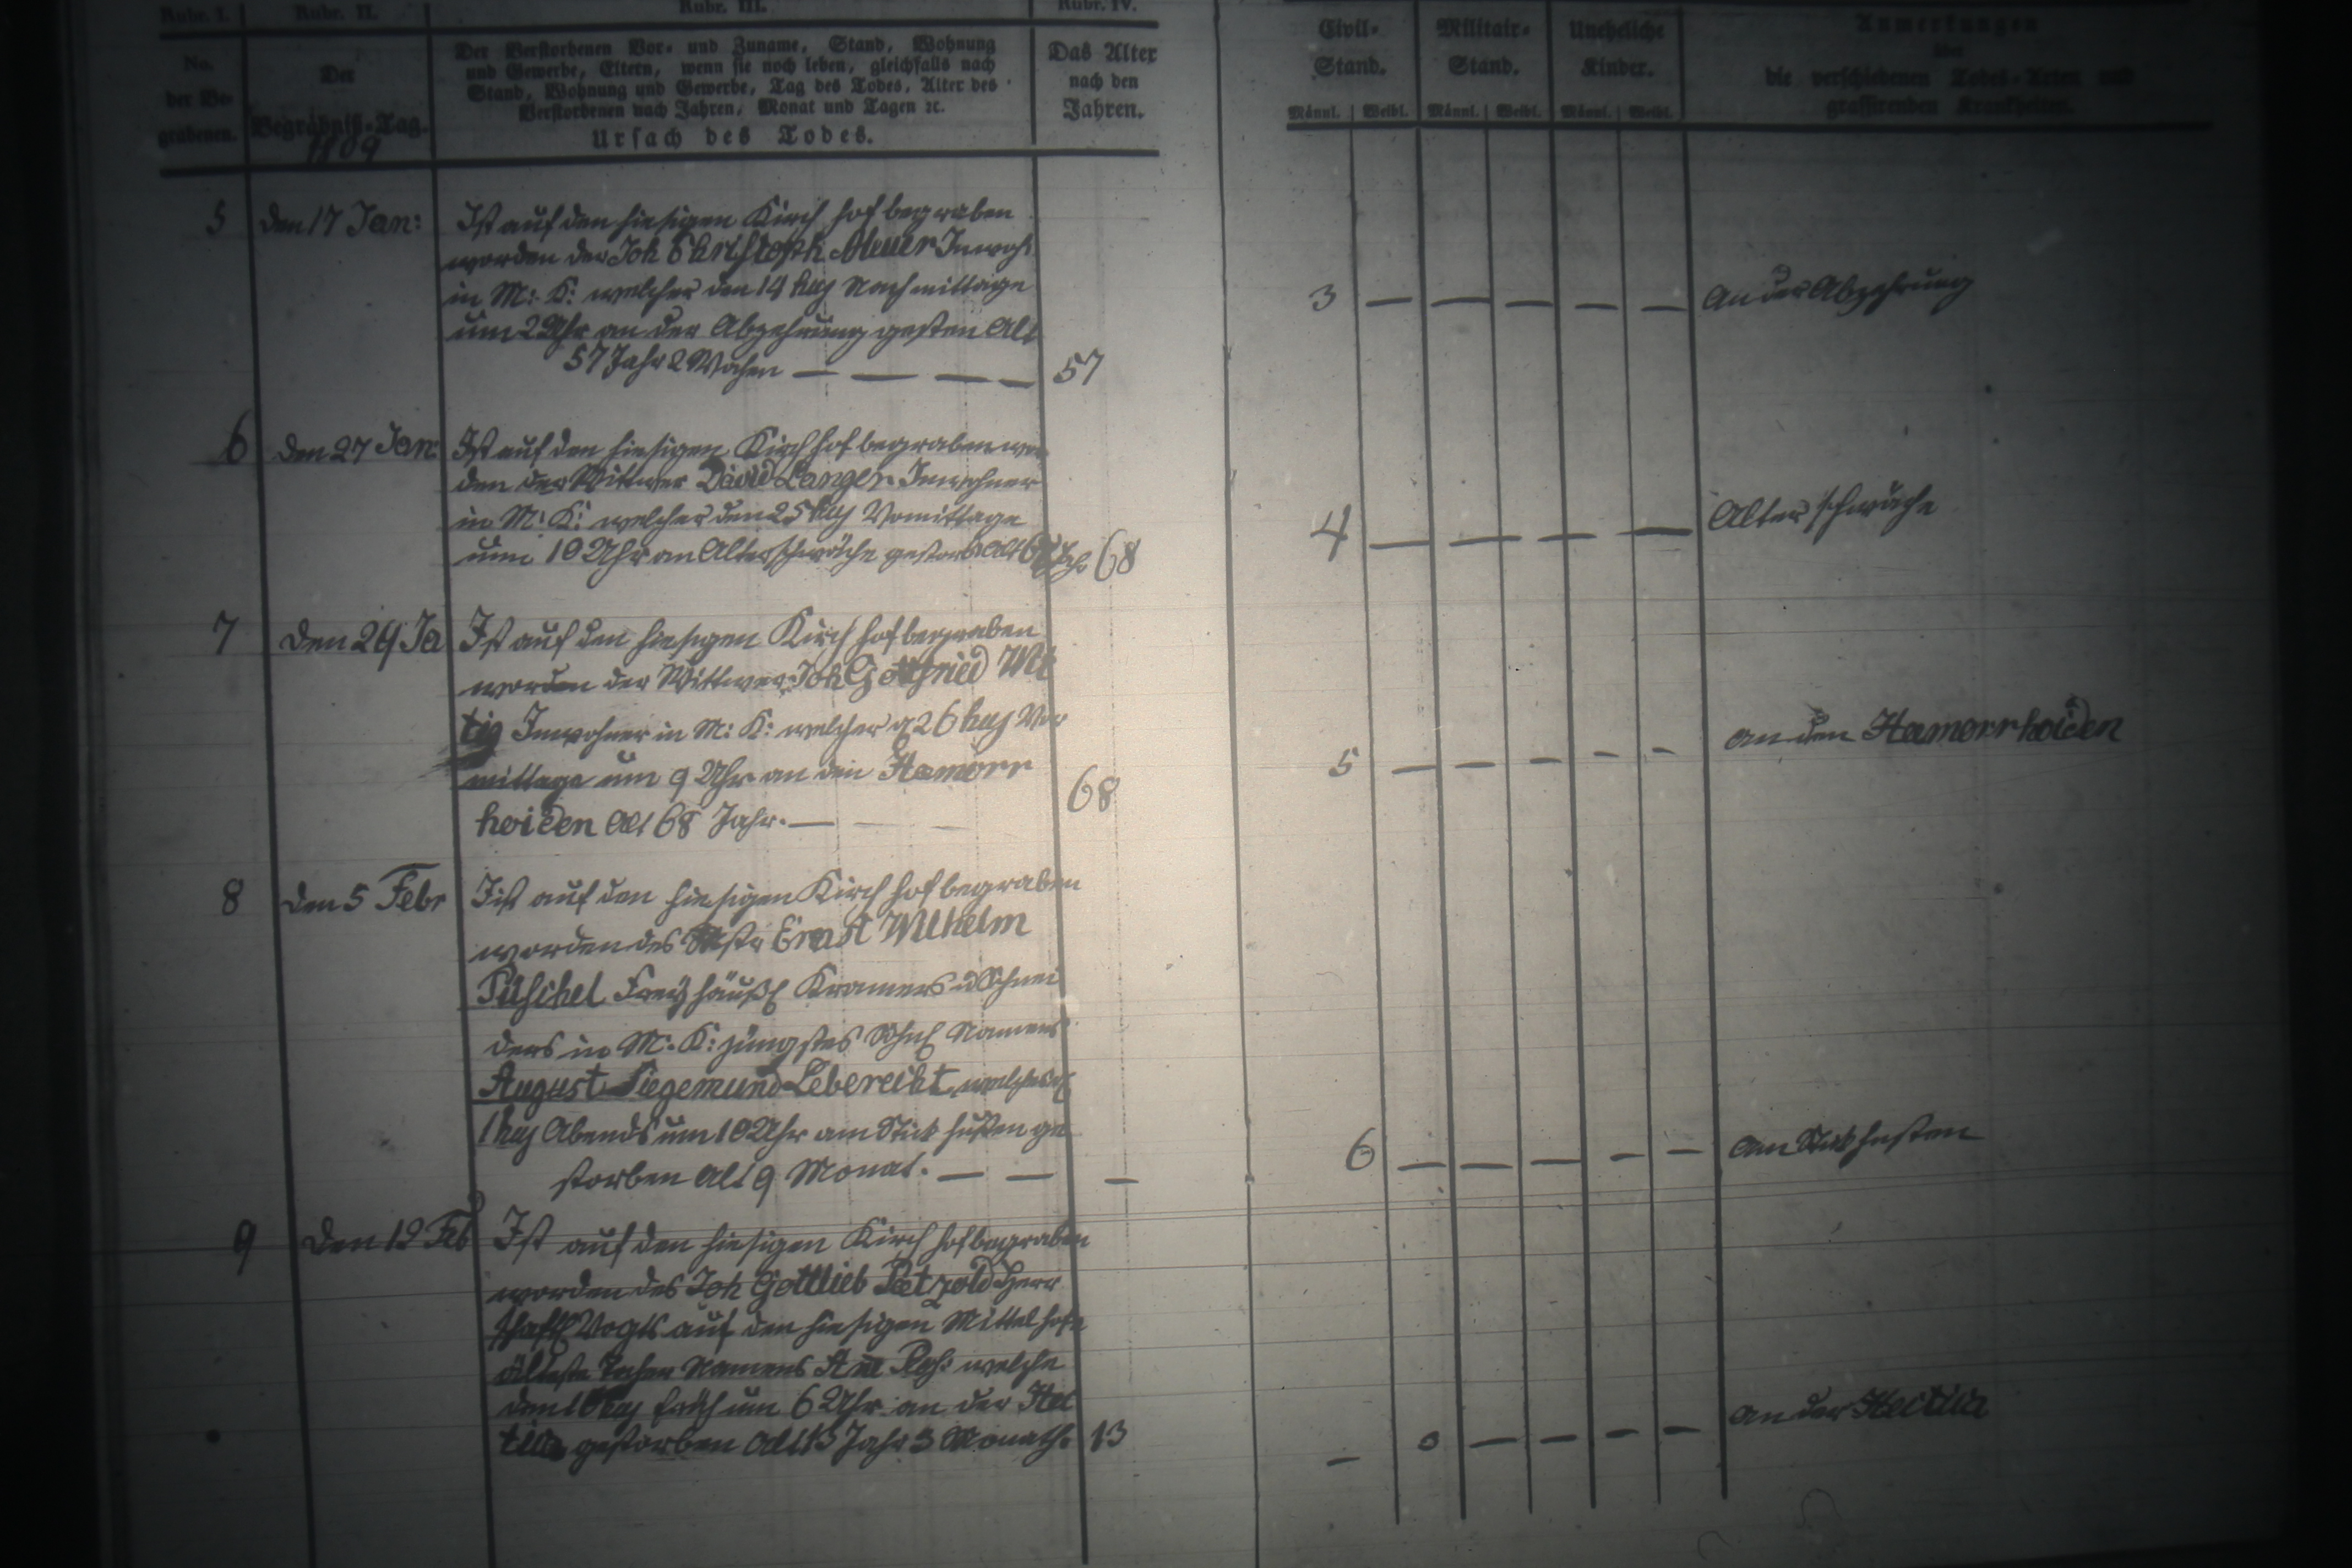 Rubr. I. Rubr. II. Rubr. III. Rubr. IV.
No. der Be- grabenen.
Der Begräbniß-Tag.
1809
Der Verstorbenen Vor- und Zuname, Stand, Wohnung
und Gewerbe, Eltern, wenn sie noch leben, gleichfalls nach
Stand, Wohnung und Gewerbe, Tag des Todes, Alter des
Verstorbenen nach Jahren, Monat und Tagen ꝛc.
Ursach des Todes.
Das Alter
nach den
Jahren.
Civil- Stand.
Militair- Stand.
Uneheliche Kinder.
Männl. Weibl. Männl. Weibl. Männl. Weibl.
Anmerkungen
über
die verschiedenen Todes-Arten und
grassirenden Krankheiten.
5 den 17 Jan: Ist auf den hiesigen Kirch hof begraben
worden der Joh Christoph Inwoh
in M: K: welcher den 14 huj Nachmittage
um 2 Uhr an der Abzehrung gesten Alt
57 Jahr 2 Wochen — — — — 57
3 — — — — — An der Abzehrung
6 den 27 Jan: Ist auf den hiesigen Kirch hof begraben wor
den der Wittwer David Langer Inwohner
in M: K: welcher den 25 huj Vomittage
um 10 Uhr an Alterschwäche gestorb Alt 68 Jahr 68
4 — — — — Alterschwäche
7 den 29 Ja Ist auf den hiesigen Kirch hof begraben
worden der Wittwer Joh Gottfried Wit
tig Inwohner in M: K: welcher d 26 huj Vor
mittage um 9 Uhr an den Hæmorr
hoiden Alt 68 Jahr. — — — 68
5 — — — — — an den Hæmorrhoiden
8 den 5 Febr Ist auf den hiesigen Kirch hof begraben
worden des Mstr Ernst Wilhelm
Püschel Freyhäußl Kramers u Schnei
ders in M: K: jüngstes Söhnl Namens
August Siegemund Leberecht, welches d
1 huj Abends um 10 Uhr am Stick husten ge
storben Alt 9 Monat. — — —
6 — — — — — am Stickhusten
9 den 12 Feb Ist auf den hiesigen Kirch hof begraben
worden des Joh Gottlieb Petzold Herr
schaftl Vogts auf den hiesigen Mittel hofe
älteste Tochter Namens welche
den 10 huj früh um 6 Uhr an der Hec
tica gestorben Alt 13 Jahr 3 Monath. 13
— — — — — an der Hectica